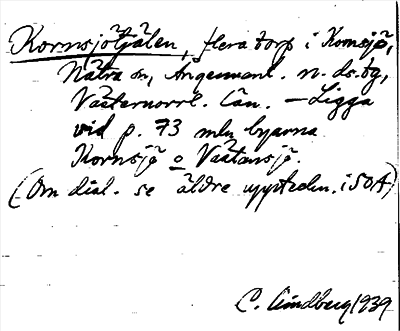 Kornsjötjälen, flera torp i Kornsjö,
Nätra sn, Ångermanl. n. ds. dg,
Västernorrl. län. — Ligga
vid p. 73 mln byarna
Kornsjö o Västansjö.
(Om dial. se äldre uppteckn. i SOA)
C. Lindberg 1939